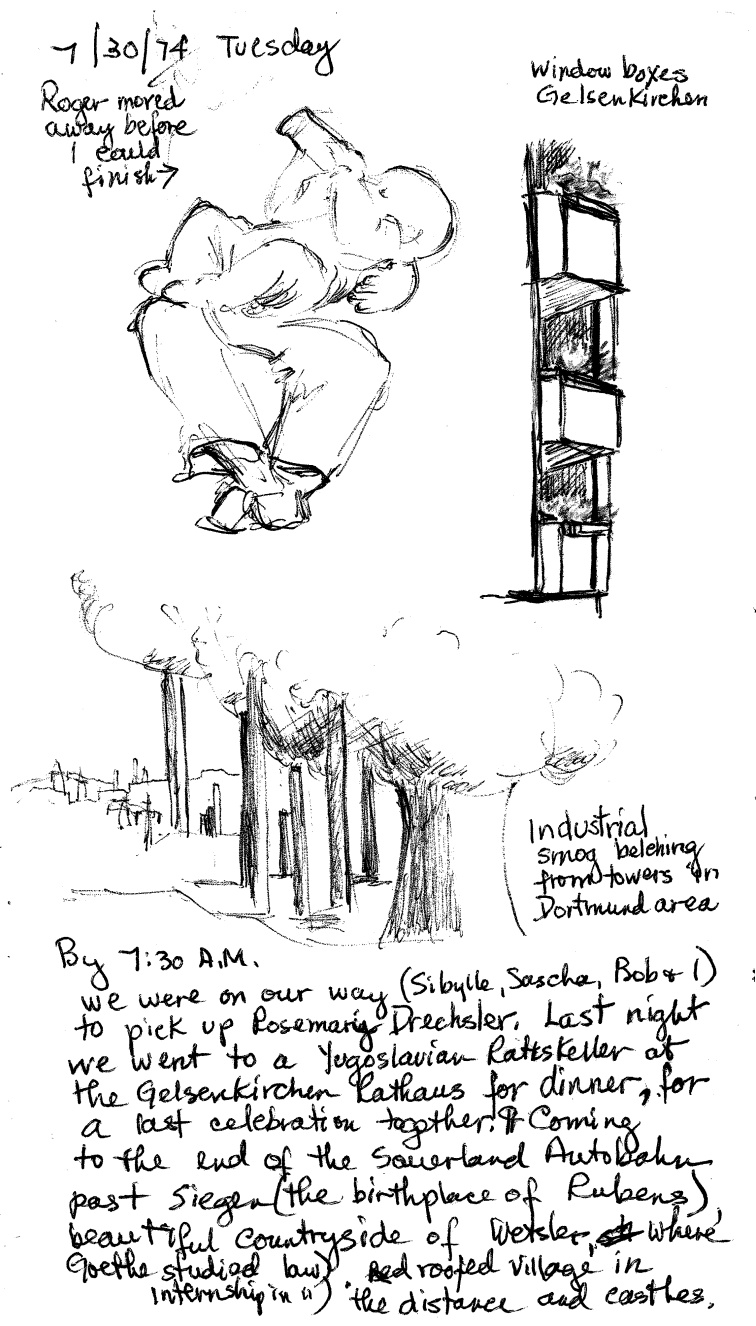 7/30/74 Tuesday
Roger moved
away before
I could
finish→
Window boxes
Gelsenkirchen
Industrial
smog belching
from towers in
Dortmund area
By 7:30 A.M.
we were on our way (Sibylle, Sascha, Bob & I)
to pick up Rosemarie Drechsler. Last night
we went to a Yugoslavian Rattskeller at
the Gelsenkirchen Rathaus for dinner, for
a last celebration together. ¶ Coming
to the end of the Sauerland Autobahn
past Siegen (the birthplace of Rubens),
beautiful countryside of Wetsler, where
Goethe studied law) Red roofed village in
Internship in ") the distance and castles.